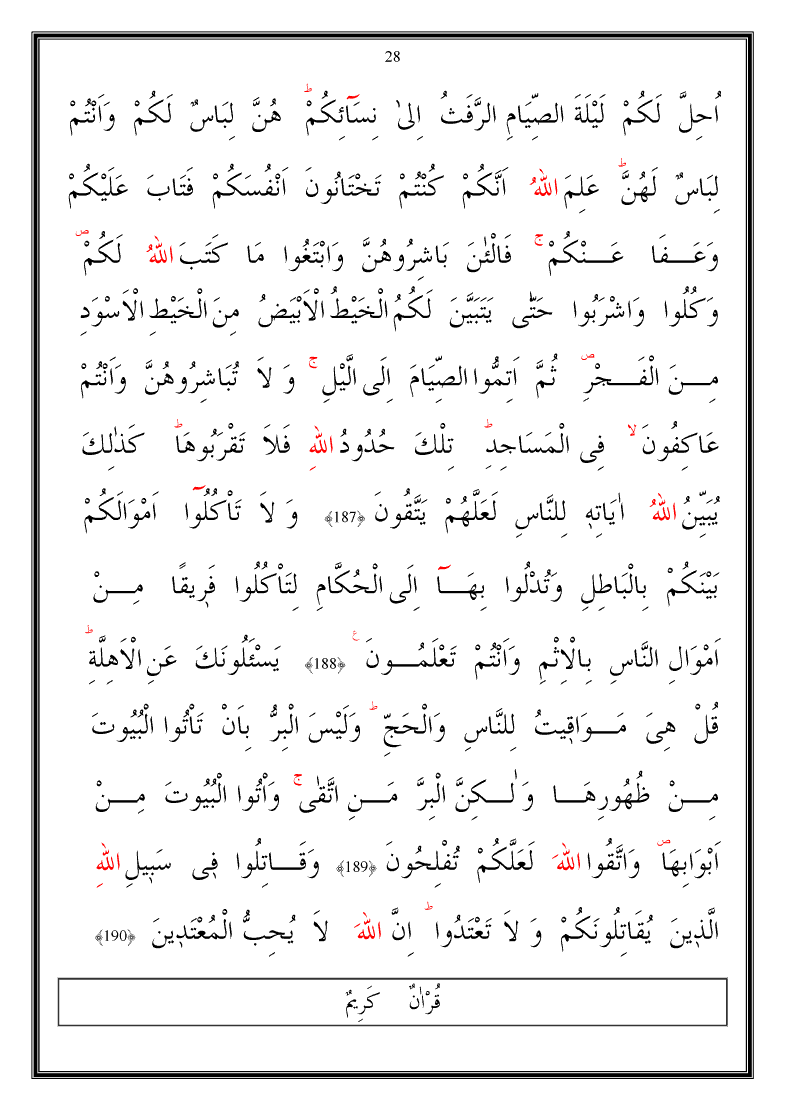 28
اُحِلَّ لَكُمْ لَيْلَةَ الصِّيَامِ الرَّفَثُ اِلىٰ نِسَٓائِكُمْۜ هُنَّ لِبَاسٌ لَكُمْ وَاَنْتُمْ
لِبَاسٌ لَهُنَّۜ عَلِمَ اللهُ اَنَّكُمْ كُنْتُمْ تَخْتَانُونَ اَنْفُسَكُمْ فَتَابَ عَلَيْكُمْ
وَعَـــفَا عَـــنْكُمْۚ فَالْـٰٔنَ بَاشِرُوهُنَّ وَابْتَغُوا مَا كَتَبَ اللهُ لَكُمْۖ
وَكُلُوا وَاشْرَبُوا حَتّٰى يَتَبَيَّنَ لَكُمُ الْخَيْطُ الْاَبْيَضُ مِنَ الْخَيْطِ الْاَسْوَدِ
مِـــنَ الْفَـــجْرِۖ ثُمَّ اَتِمُّوا الصِّيَامَ اِلَى الَّيْلِۚ وَ لَا تُبَاشِرُوهُنَّ وَاَنْتُمْ
عَاكِفُونَۙ فِى الْمَسَاجِدِۜ تِلْكَ حُدُودُ اللهِ فَلَا تَقْرَبُوهَاۜ كَذٰلِكَ
يُبَيِّنُ اللهُ اٰيَاتِهٖ لِلنَّاسِ لَعَلَّهُمْ يَتَّقُونَ ﴿187﴾ وَ لَا تَاْكُلُٓوا اَمْوَالَكُمْ
بَيْنَكُمْ بِالْبَاطِلِ وَتُدْلُوا بِهَـــٓا اِلَى الْحُكَّامِ لِتَاْكُلُوا فَرٖيقًا مِـــنْ
اَمْوَالِ النَّاسِ بِالْاِثْمِ وَاَنْتُمْ تَعْلَمُـــونَ ۟ ﴿188﴾ يَسْـَٔلُونَكَ عَنِ الْاَهِلَّةِۜ
قُلْ هِىَ مَـــوَاقٖيتُ لِلنَّاسِ وَالْحَجِّۜ وَلَيْسَ الْبِرُّ بِاَنْ تَاْتُوا الْبُيُوتَ
مِـــنْ ظُهُورِهَـــا وَلٰـــكِنَّ الْبِرَّ مَـــنِ اتَّقٰىۚ وَاْتُوا الْبُيُوتَ مِـــنْ
اَبْوَابِهَاۖ وَاتَّقُوا اللهَ لَعَلَّكُمْ تُفْلِحُونَ ﴿189﴾ وَقَـــاتِلُوا فٖى سَبٖيلِ اللهِ
الَّذٖينَ يُقَاتِلُونَكُمْ وَ لَا تَعْتَدُواۜ اِنَّ اللهَ لَا يُحِبُّ الْمُعْتَدٖينَ ﴿190﴾
قُرْاٰنٌ كَرِيمٌ